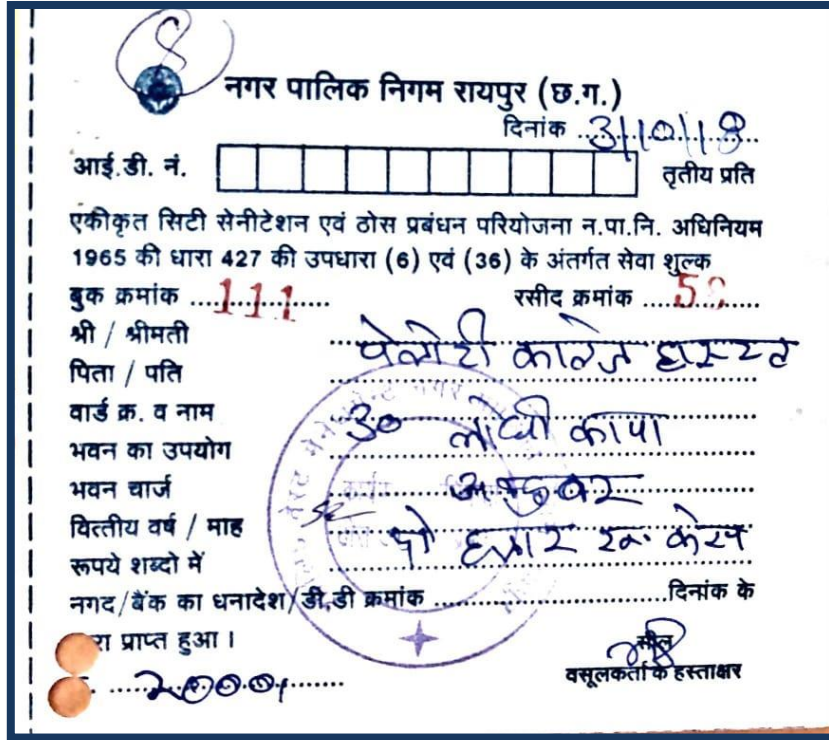 नगर पालिक निगम रायपुर (छ.ग.)
दिनांक 3/10/18
आई.डी. नं. तृतीय प्रति
एकीकृत सिटी सेनीटेशन एवं ठोस प्रबंधन परियोजना न.पा.नि. अधिनियम
1965 की धारा 427 की उपधारा (6) एवं (36) के अंतर्गत सेवा शुल्क
बुक क्रमांक 111 रसीद क्रमांक
श्री / श्रीमती
कालेज हास्टल
पिता / पति
वार्ड क्र. व नाम 30
भवन का उपयोग
भवन चार्ज
वित्तीय वर्ष / माह अक्टुबर
रूपये शब्दो में दो हजार रू. केस
नगद/बैंक का धनादेश/डी.डी क्रमांक दिनांक के
रा प्राप्त हुआ ।
सील
2000/
वसूलकर्ता के हस्ताक्षर